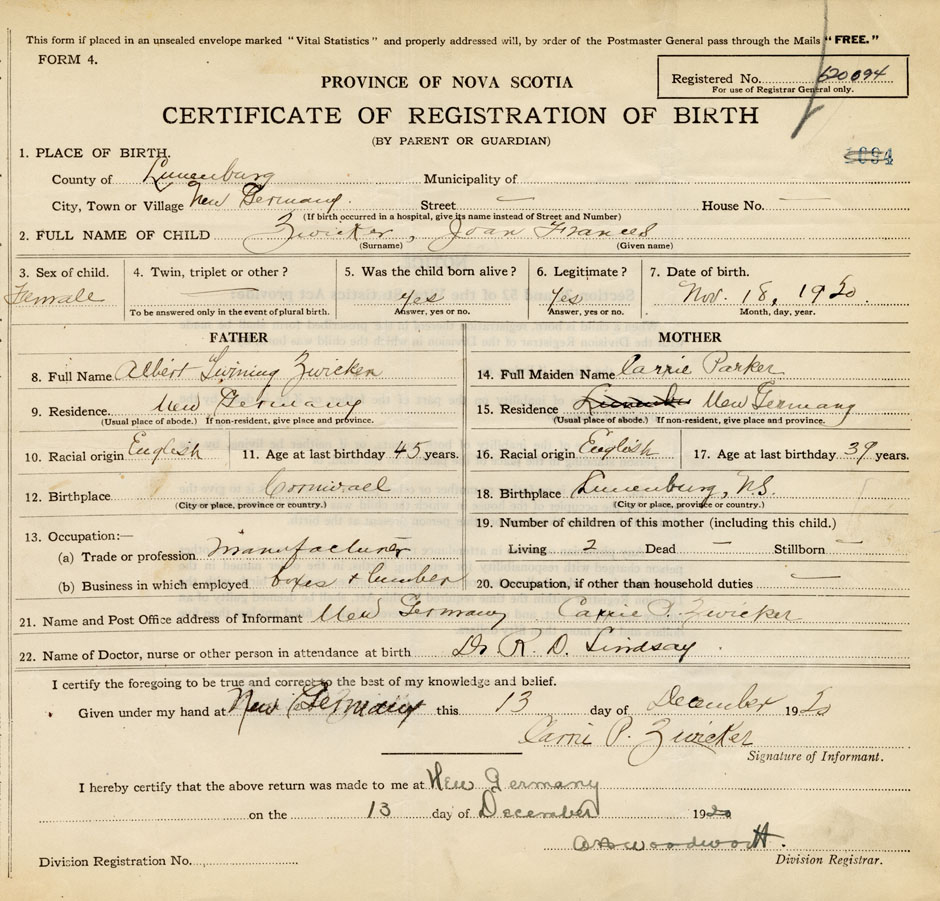 This form if placed in an unsealed envelope marked "Vital Statistics" and properly addressed will, by order of the Postmaster General pass through the Mails "FREE."
FORM 4.
Registered No. 620094
For use of Registrar General only.
PROVINCE OF NOVA SCOTIA
CERTIFICATE OF REGISTRATION OF BIRTH
(BY PARENT OR GUARDIAN)
1. PLACE OF BIRTH.
County of Lunenburg Municipality of —
City, Town or Village New Germany. Street — House No. —
(If birth occurred in a hospital, give its name instead of Street and Number)
2. FULL NAME OF CHILD Zwicker, Joan Frances
(Surname) (Given name)
3. Sex of child. 4. Twin, triplet or other? 5. Was the child born alive? 6. Legitimate? 7. Date of birth.
Female — Yes Yes Nov. 18, 1920.
To be answered only in the event of plural birth. Answer, yes or no. Answer, yes or no. Month, day, year.
FATHER MOTHER
8. Full Name Albert Twining Zwicker 14. Full Maiden Name Carrie Parker
9. Residence. New Germany 15. Residence New Germany
(Usual place of abode.) If non-resident, give place and province. (Usual place of abode.) If non-resident, give place and province.
10. Racial origin English 11. Age at last birthday 45 years. 16. Racial origin English 17. Age at last birthday 39 years.
12. Birthplace Cornwall 18. Birthplace Lunenburg, N.S.
(City or place, province or country.) (City or place, province or country.)
13. Occupation:— 19. Number of children of this mother (including this child.)
(a) Trade or profession Manufacturer Living 2 Dead — Stillborn —
(b) Business in which employed boxes + lumber 20. Occupation, if other than household duties —
21. Name and Post Office address of Informant New Germany Carrie P. Zwicker
22. Name of Doctor, nurse or other person in attendance at birth Dr R. D. Lindsay
I certify the foregoing to be true and correct to the best of my knowledge and belief.
Given under my hand at New Germany this 13 day of December 1920
Carrie P. Zwicker
Signature of Informant.
I hereby certify that the above return was made to me at New Germany
on the 13 day of December 1920
Woodworth.
Division Registrar.
Division Registration No.